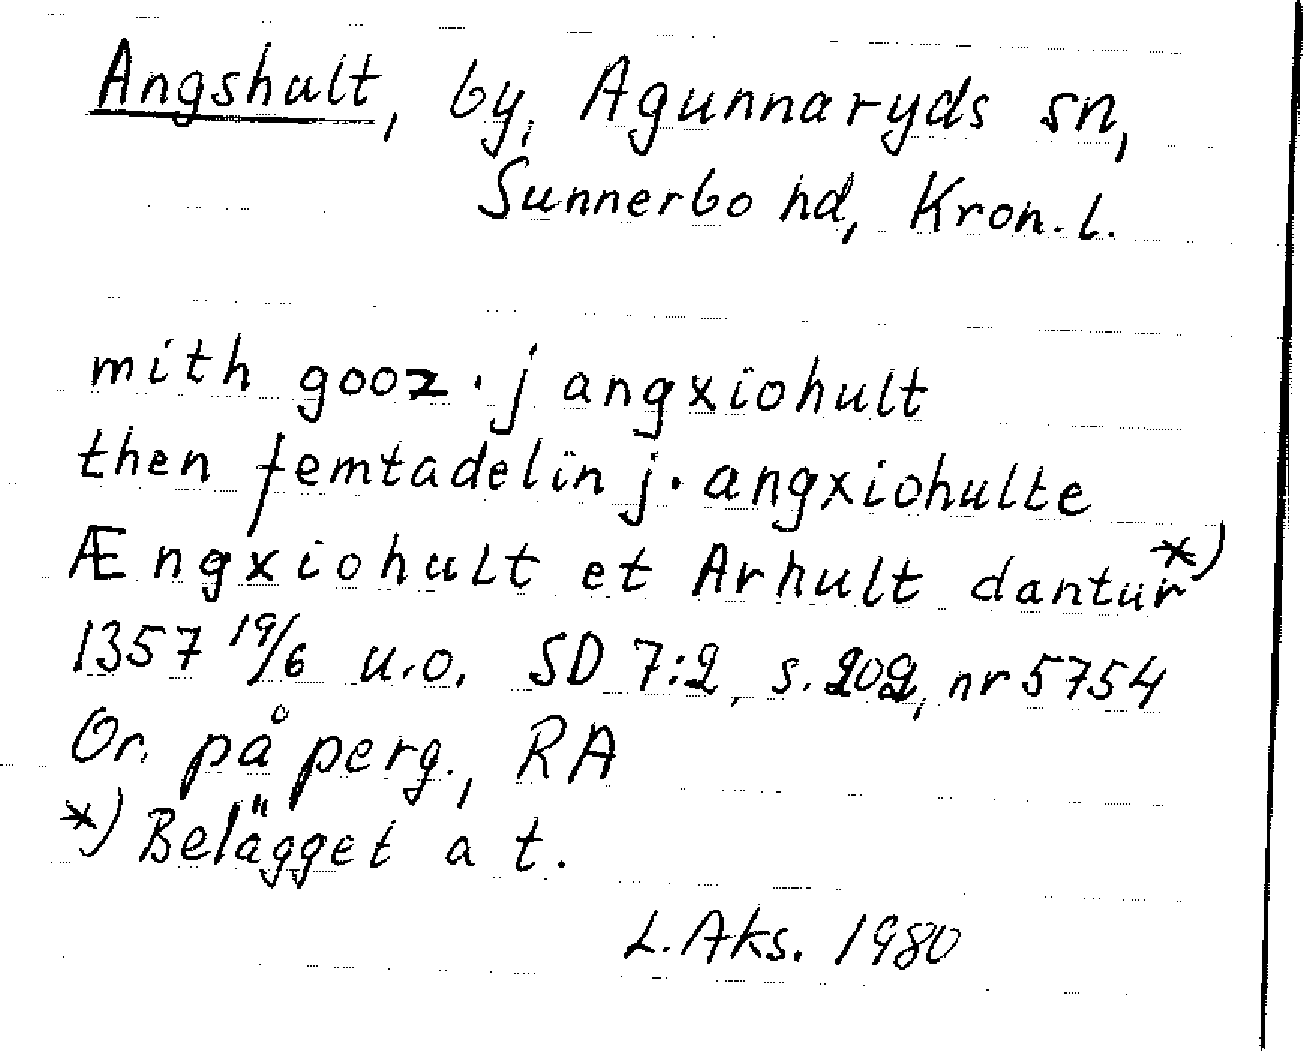 Angshult, by, Agunnaryds sn,
Sunnerbo hd, Kron.l.
mith gooz · j angxiohult
then femtadelin j · angxiohulte
Ængxiohult et Arhult dantur *)
1357 19/6 u.o. SD 7:2, s. 202, nr 5754
Or. på perg., RA
*) Belägget a t.
L. Aks. 1980